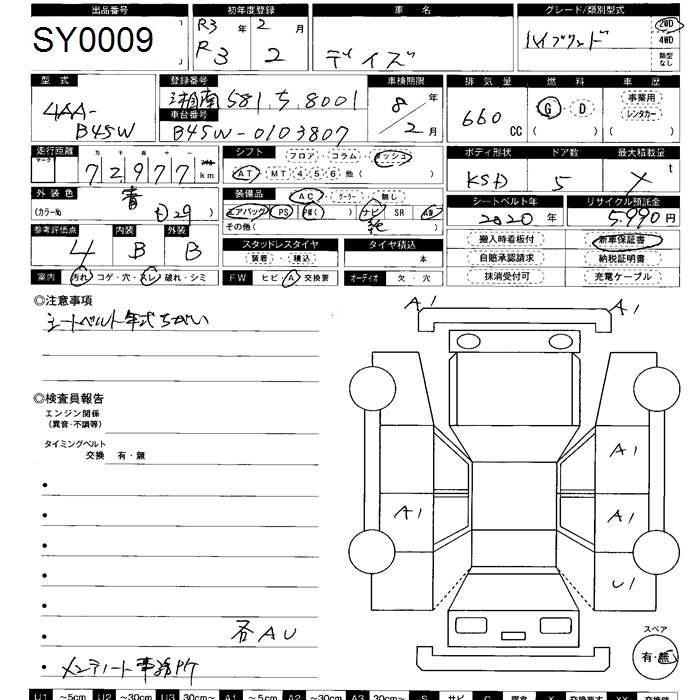 出品番号 初年度登録 車名 グレード/類別型式
SY0009 R3年 2月
R3 2 デイズ ハイブリッド 2WD 4WD 類型なし
型式 登録番号 車検期限 排気量 燃料 車歴
4AA-B45W 湘南 581 ち 8001 8年 2月 660cc G・D ( ) 事業用 レンタカー ( )
車台番号
B45W-0103807
走行距離 シフト ボディ形状 ドア数 最大積載量
マーク 万 千 百 十 一
72977 km
フロア・コラム・ダッシュ
AT・MT 4 5 6 他( )
5 t
外装色 装備品 シートベルト年 リサイクル預託金
青 AC・クーラー・無し 2020年 5,990円
(カラー№ ) エアバッグ PS PW( ) ナビ SR AW
その他( )
搬入時看板付 新車保証書
参考評価点 内装 外装 スタッドレスタイヤ タイヤ積込
4 B B 装着・積込 本
自賠承認請求 納税証明書
抹消受付可 充電ケーブル
室内 汚れ・コゲ・穴・スレ・破れ・シミ FW ヒビ・A・交換要 オーディオ 欠・穴
◎注意事項
シートベルト年式ちがい
A1 A1
◎検査員報告
エンジン関係
(異音・不調等)
タイミングベルト
交換 有・無
A1
A1 A1
U1
各AU
スペア
有・無
U1 ~5cm U2 ~30cm U3 30cm~ A1 ~5cm A2 ~30cm A3 30cm~ S サビ C 腐食 X 交換要す XX 交換跡